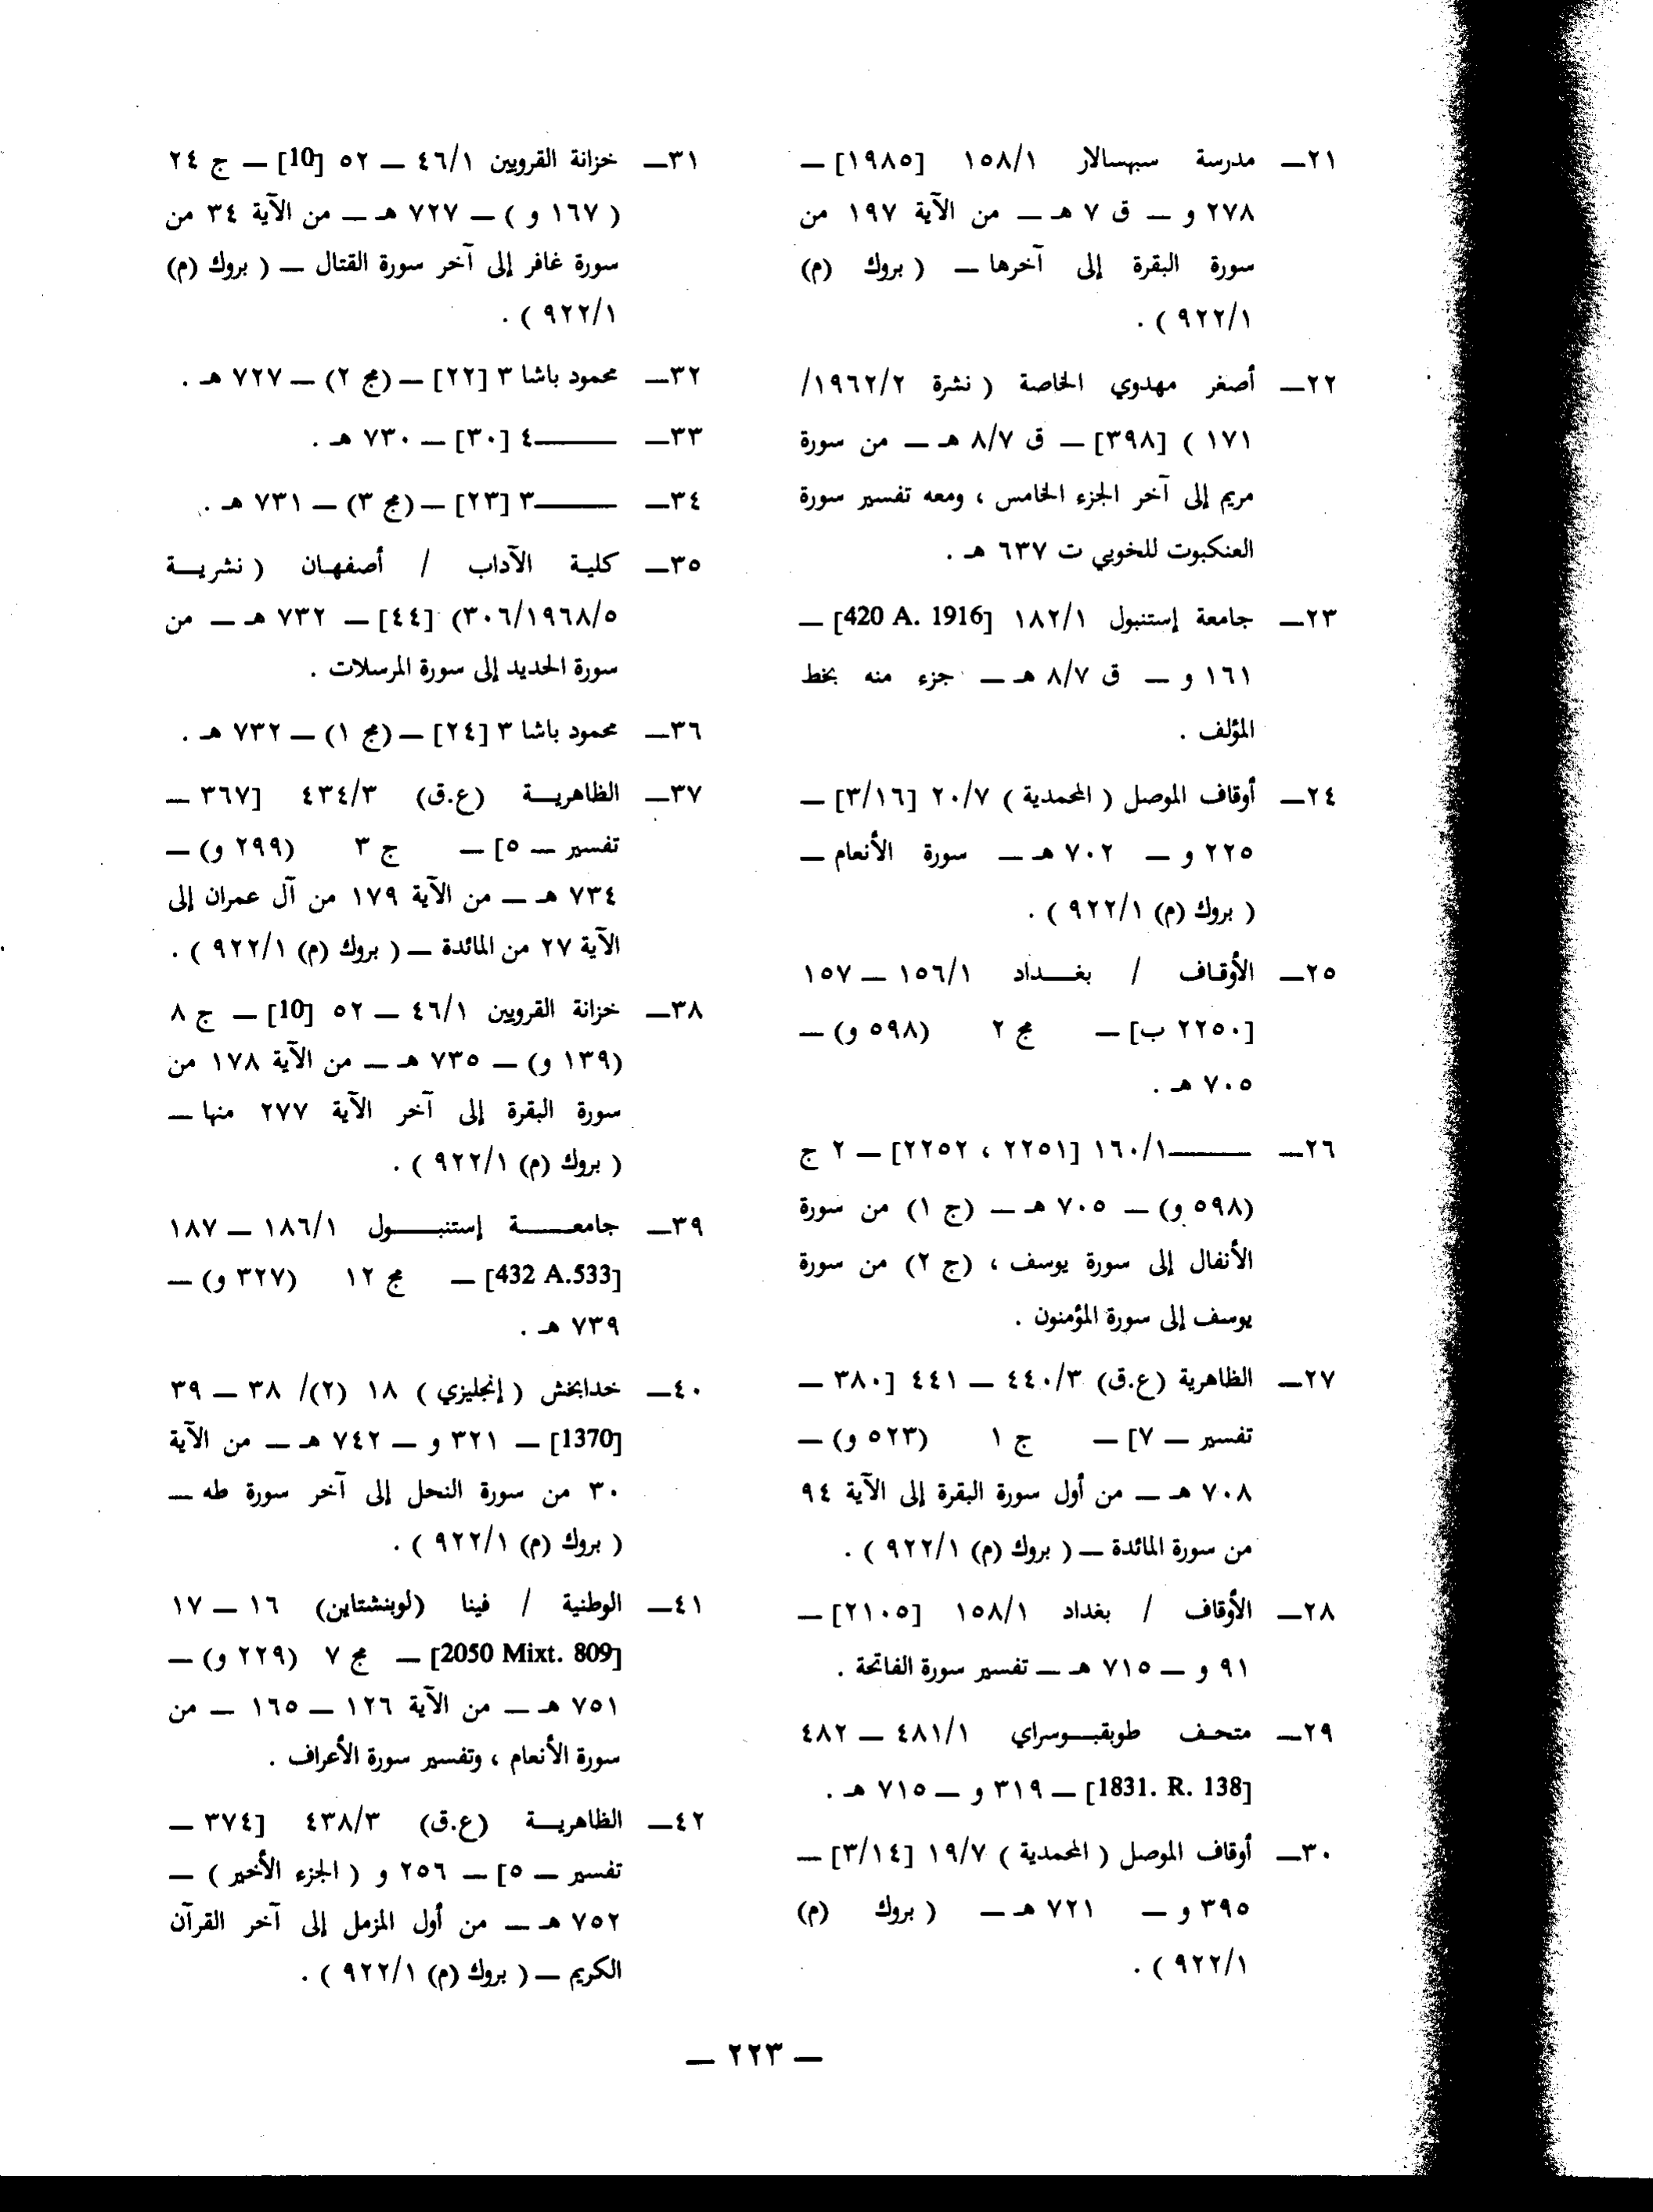 ٢١ــ مدرسة سبهسالار ١٥٨/١ [١٩٨٥] ــ
٢٧٨ و ــ ق ٧ هـ ــ من الآية ١٩٧ من
سورة البقرة إلى آخرها ــ ( بروك (م)
٩٢٢/١ ) .
٢٢ــ أصغر مهدوي الخاصة ( نشرة ١٩٦٢/٢/
١٧١ ) [٣٩٨] ــ ق ٨/٧ هـ ــ من سورة
مريم إلى آخر الجزء الخامس ، ومعه تفسير سورة
العنكبوت للخويي ت ٦٣٧ هـ .
٢٣ــ جامعة إستنبول ١٨٢/١ [420 A. 1916] ــ
١٦١ و ــ ق ٨/٧ هـ ــ جزء منه بخط
المؤلف .
٢٤ــ أوقاف الموصل ( المحمدية ) ٢٠/٧ [٣/١٦] ــ
٢٢٥ و ــ ٧٠٢ هـ ــ سورة الأنعام ــ
( بروك (م) ٩٢٢/١ ) .
٢٥ــ الأوقاف / بغــداد ١٥٦/١ ــ ١٥٧
[٢٢٥٠ ب] ــ مج ٢ (٥٩٨ و) ــ
٧٠٥ هـ .
٢٦ــ ـــــــ١٦٠/١ [٢٢٥١ ، ٢٢٥٢] ــ ٢ ج
(٥٩٨ و) ــ ٧٠٥ هـ ــ (ج ١) من سورة
الأنفال إلى سورة يوسف ، (ج ٢) من سورة
يوسف إلى سورة المؤمنون .
٢٧ــ الظاهرية (ع.ق) ٤٤٠/٣ ــ ٤٤١ [٣٨٠ ــ
تفسير ــ ٧] ــ ج ١ (٥٢٣ و) ــ
٧٠٨ هـ ــ من أول سورة البقرة إلى الآية ٩٤
من سورة المائدة ــ ( بروك (م) ٩٢٢/١ ) .
٢٨ــ الأوقاف / بغداد ١٥٨/١ [٢١٠٥] ــ
٩١ و ــ ٧١٥ هـ ــ تفسير سورة الفاتحة .
٢٩ــ متحـف طوبقبــوسراي ٤٨١/١ ــ ٤٨٢
[1831. R. 138] ــ ٣١٩ و ــ ٧١٥ هـ .
٣٠ــ أوقاف الموصل ( المحمدية ) ١٩/٧ [٣/١٤] ــ
٣٩٥ و ــ ٧٢١ هـ ــ ( بروك (م)
٩٢٢/١ ) .
٣١ــ خزانة القرويين ٤٦/١ ــ ٥٢ [10] ــ ج ٢٤
( ١٦٧ و ) ــ ٧٢٧ هـ ــ من الآية ٣٤ من
سورة غافر إلى آخر سورة القتال ــ ( بروك (م)
٩٢٢/١ ) .
٣٢ــ محمود باشا ٣ [٢٢] ــ (مج ٢) ــ ٧٢٧ هـ .
٣٣ــ ـــــــ٤ [٣٠] ــ ٧٣٠ هـ .
٣٤ــ ـــــــ٣ [٢٣] ــ (مج ٣) ــ ٧٣١ هـ .
٣٥ــ كليـة الآداب / أصفهـان ( نشريــة
٣٠٦/١٩٦٨/٥) [٤٤] ــ ٧٣٢ هـ ــ من
سورة الحديد إلى سورة المرسلات .
٣٦ــ محمود باشا ٣ [٢٤] ــ (مج ١) ــ ٧٣٢ هـ .
٣٧ــ الظاهريــة (ع.ق) ٤٣٤/٣ [٣٦٧ ــ
تفسير ــ ٥] ــ ج ٣ (٢٩٩ و) ــ
٧٣٤ هـ ــ من الآية ١٧٩ من آل عمران إلى
الآية ٢٧ من المائدة ــ ( بروك (م) ٩٢٢/١ ) .
٣٨ــ خزانة القرويين ٤٦/١ ــ ٥٢ [10] ــ ج ٨
(١٣٩ و) ــ ٧٣٥ هـ ــ من الآية ١٧٨ من
سورة البقرة إلى آخر الآية ٢٧٧ منها ــ
( بروك (م) ٩٢٢/١ ) .
٣٩ــ جامعــــة إستنبــــول ١٨٦/١ ــ ١٨٧
[432 A.533] ــ مج ١٢ (٣٢٧ و) ــ
٧٣٩ هـ .
٤٠ــ خدابخش ( إنجليزي ) ١٨ (٢)/ ٣٨ ــ ٣٩
[1370] ــ ٣٢١ و ــ ٧٤٢ هـ ــ من الآية
٣٠ من سورة النحل إلى آخر سورة طه ــ
( بروك (م) ٩٢٢/١ ) .
٤١ــ الوطنية / فينا (لوبنشتاين) ١٦ ــ ١٧
[2050 Mixt. 809] ــ مج ٧ (٢٢٩ و) ــ
٧٥١ هـ ــ من الآية ١٢٦ ــ ١٦٥ ــ من
سورة الأنعام ، وتفسير سورة الأعراف .
٤٢ــ الظاهريــة (ع.ق) ٤٣٨/٣ [٣٧٤ ــ
تفسير ــ ٥] ــ ٢٥٦ و ( الجزء الأخير ) ــ
٧٥٢ هـ ــ من أول المزمل إلى آخر القرآن
الكريم ــ ( بروك (م) ٩٢٢/١ ) .
ــ ٢٢٣ ــ